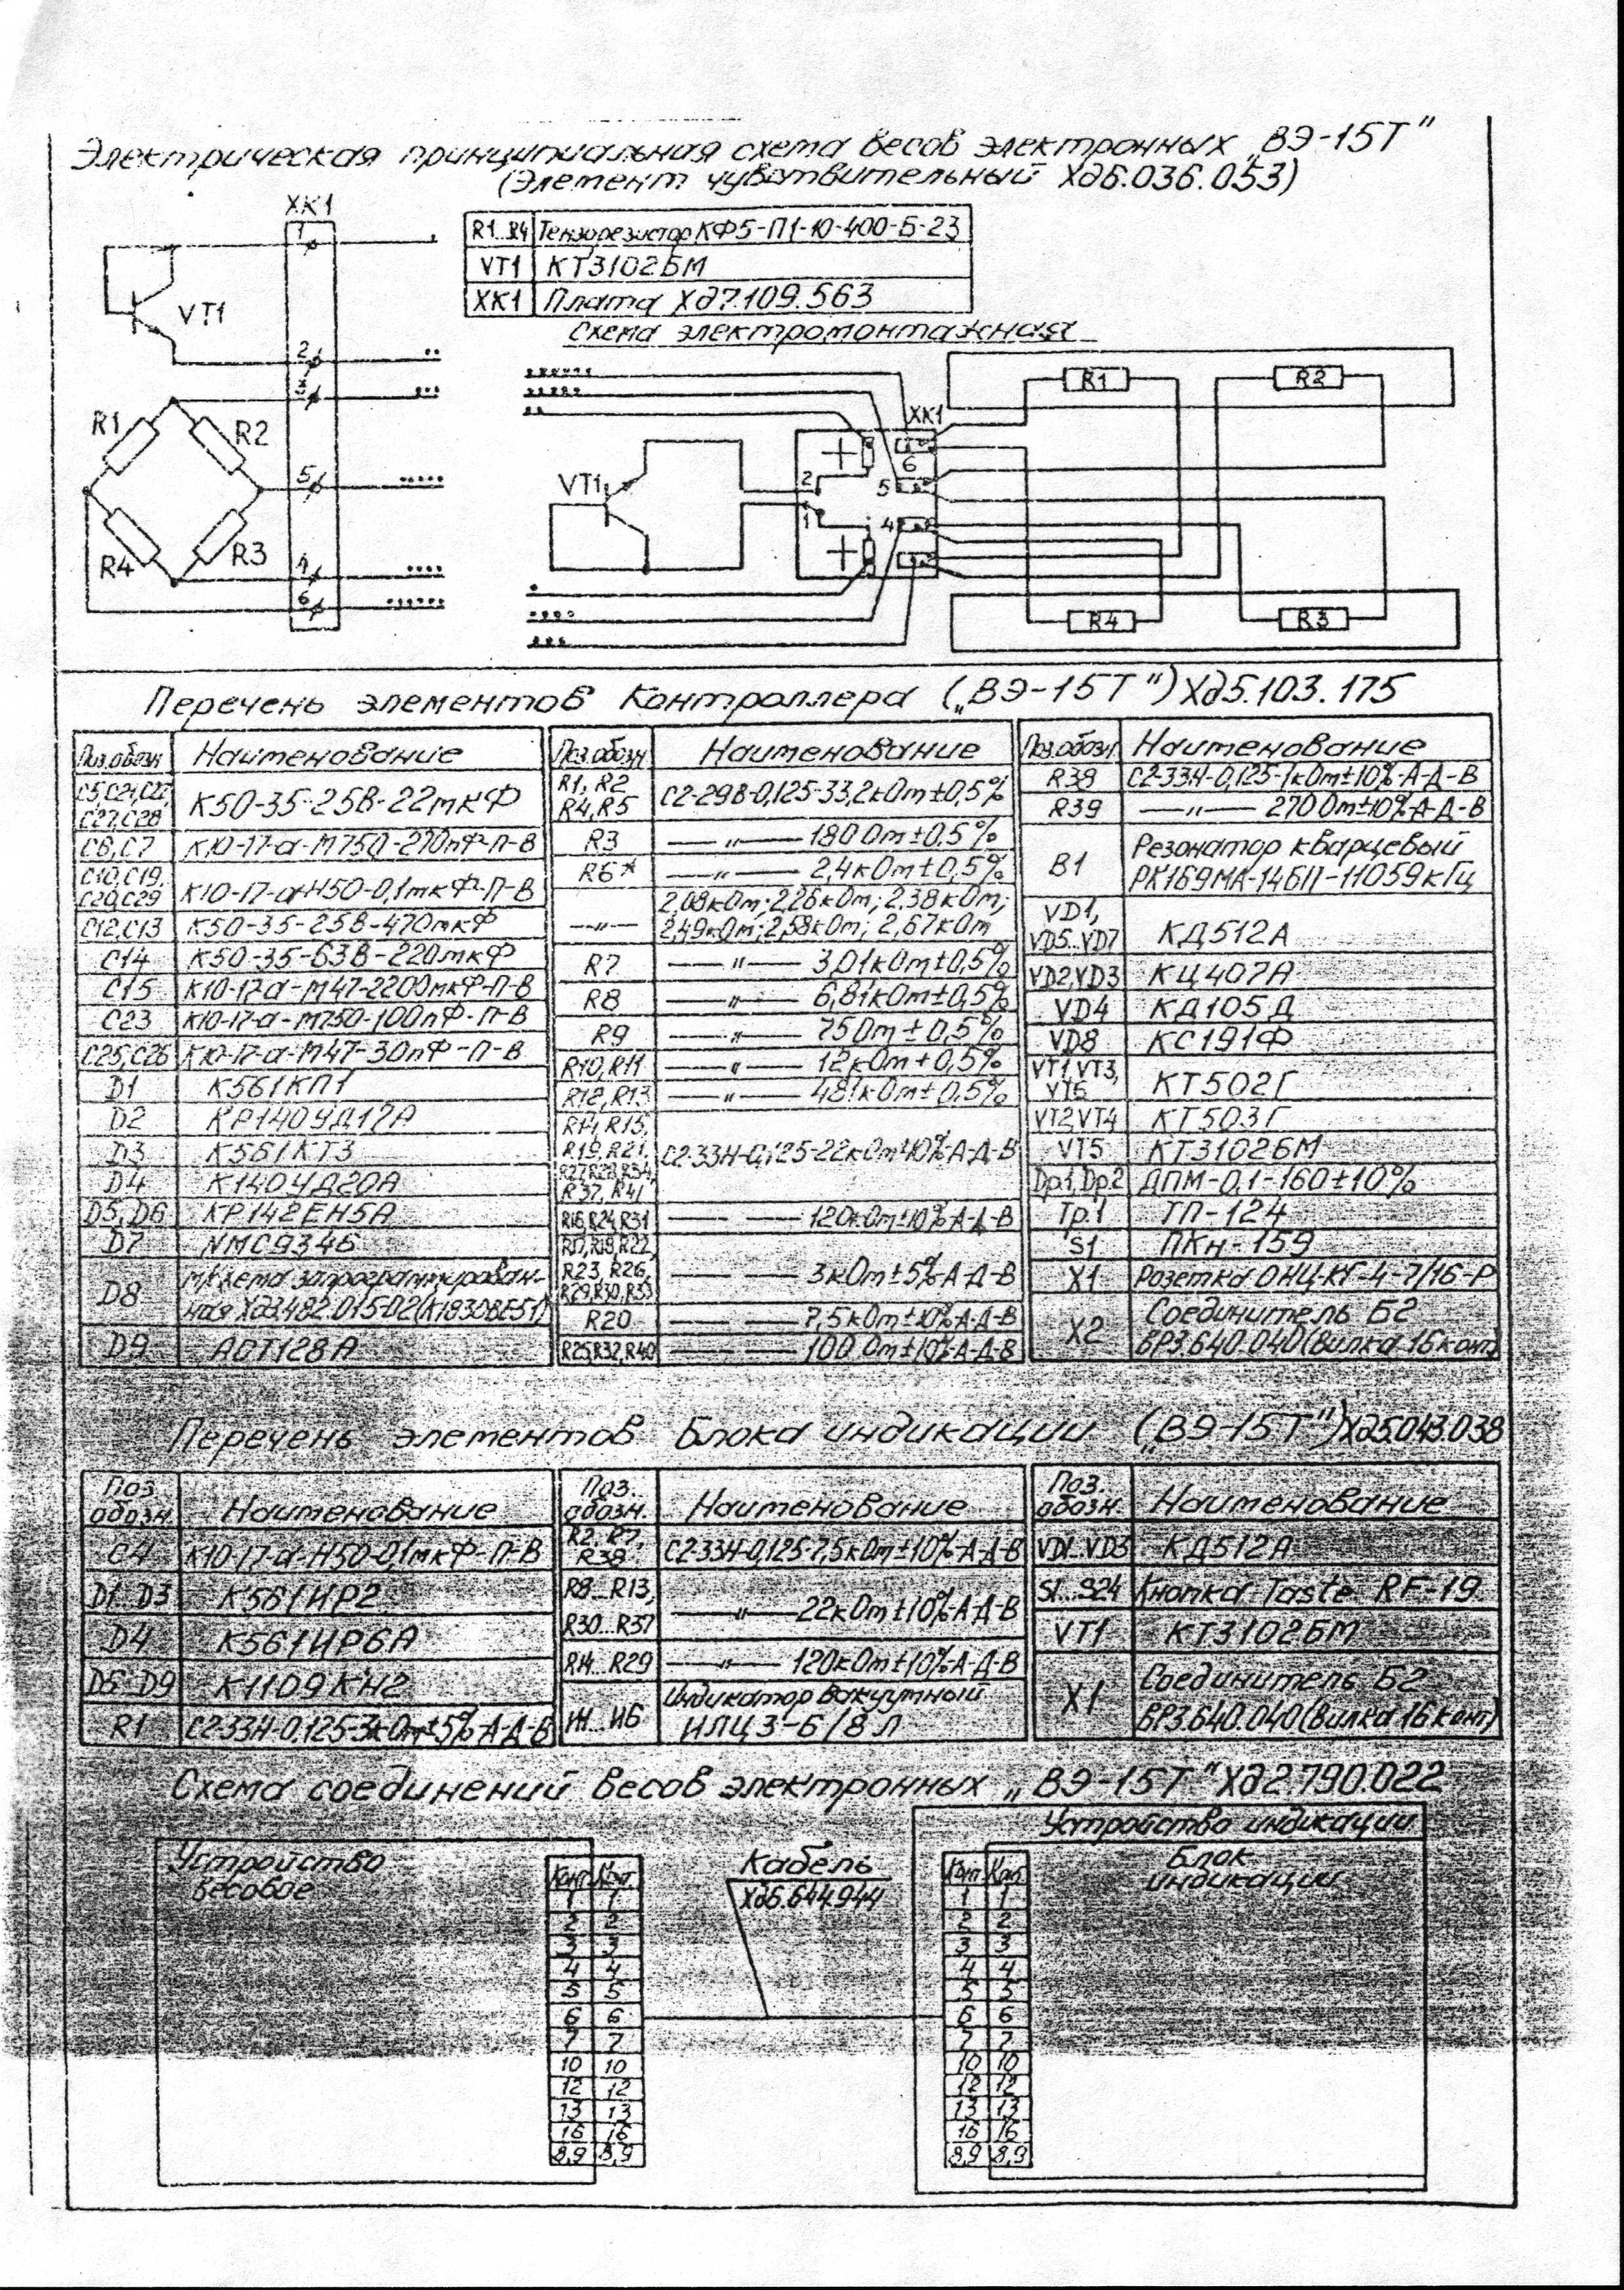 Электрическая принципиальная схема весов электронных „ВЭ-15Т"
(Элемент чувствительный Хд6.036.053)
ХК1
1
VT1
2
3
R1
R2
5
R4
R3
4
6
R1...R4 Тензорезистор КФ5-П1-10-400-Б-23
VT1 КТ3102БМ
ХК1 Плата Хд7.109.563
Схема электромонтажная
R1
R2
ХК1
6
VT1
2
5
1
4
R4
R3
Перечень элементов Контроллера („ВЭ-15Т") Хд5.103.175
Поз.обозн Наименование
С27,С28 К50-35-25В-22мкФ
С6,С7 К10-17-а-М750-270пФ-П-В
С10,С19,
С20,С29 К10-17-а-Н50-0,1мкФ-П-В
С12,С13 К50-35-25В-470мкФ
С14 К50-35-63В-220мкФ
С15 К10-17-а-М47-2200мкФ-П-В
С23 К10-17-а-М750-100пФ-П-В
С25,С26 К10-17-а-М47-30пФ-П-В
D1 К561КП1
D2 КР140УД17А
D3 К561КТ3
D4 К140УД20А
D5,D6 КР142ЕН5А
D7 NMC9346
D8 м/схема запрограммирован-
ная Хд3.482.015-02(К1830ВЕ51)
D9 АОТ128А
Поз.обозн Наименование
R1, R2
R4, R5 С2-29В-0,125-33,2кОм±0,5%
R3 —„— 180 Ом±0,5%
R6* —„— 2,4кОм±0,5%
2,08кОм; 2,26кОм; 2,38кОм;
—„— 2,49кОм; 2,58кОм; 2,67кОм
R7 —„— 3,01кОм±0,5%
R8 —„— 6,81кОм±0,5%
R9 —„— 75Ом±0,5%
R10,R11 —„— 12кОм+0,5%
R12,R13 —„— 481кОм±0,5%
R14, R15,
R19, R21,
R27,R28,R34,
R37, R41 С2-33Н-0,125-22кОм±10%А-Д-В
R16,R24,R31 — — 120кОм±10%А-Д-В
R17,R18,R22,
R23, R26,
R29,R30,R33 — — 3кОм±5%А-Д-В
R20 — — 7,5кОм±10%А-Д-В
R25,R32,R40 — — 100 Ом±10%А-Д-В
Поз.обозн Наименование
R38 С2-33Н-0,125-1кОм±10%-А-Д-В
R39 —„— 270 Ом±10%А-Д-В
В1 Резонатор кварцевый
РК169МА-14БП-11059кГц
VD1,
VD5...VD7 КД512А
VD2,VD3 КЦ407А
VD4 КД105Д
VD8 КС191Ф
VT1,VT3,
VT6 КТ502Г
VT2,VT4 КТ503Г
VT5 КТ3102БМ
Др.1, Др.2 ДПМ-0,1-160±10%
Тр.1 ТП-124
S1 ПКн-159
Х1 Розетка ОНЦ-КГ-4-7/16-Р
Х2 Соединитель Б2
ВР3.640.040(Вилка 16 конт)
Перечень элементов Блока индикации („ВЭ-15Т") Хд5.043.038
Поз.
обозн. Наименование
С4 К10-17-а-Н50-0,1мкФ-П-В
D1...D3 К561ИР2
D4 К561ИР6А
D5...D9 К1109КН2
R1 С2-33Н-0,125-3кОм±5%-А-Д-В
Поз.
обозн. Наименование
R2, R7,
R38 С2-33Н-0,125-7,5кОм±10%-А-Д-В
R8...R13,
R30...R37 —„— 22кОм±10%-А-Д-В
R14...R29 —„— 120кОм±10%А-Д-В
И1...И6 Индикатор вакуумный
ИЛЦ3-6/8Л
Поз.
обозн. Наименование
VD1...VD3 КД512А
S1...S24 Кнопка Taste RF-19
VT1 КТ3102БМ
Х1 Соединитель Б2
ВР3.640.040(Вилка 16 конт)
Схема соединений весов электронных „ВЭ-15Т" Хд2.790.022
Устройство
весовое
Конт. Конт.
1 1
2 2
3 3
4 4
5 5
6 6
7 7
10 10
12 12
13 13
16 16
8,9 8,9
Кабель
Хд6.644.944
Устройство индикации
Блок
индикации
Конт. Конт.
1 1
2 2
3 3
4 4
5 5
6 6
7 7
10 10
12 12
13 13
16 16
8,9 8,9